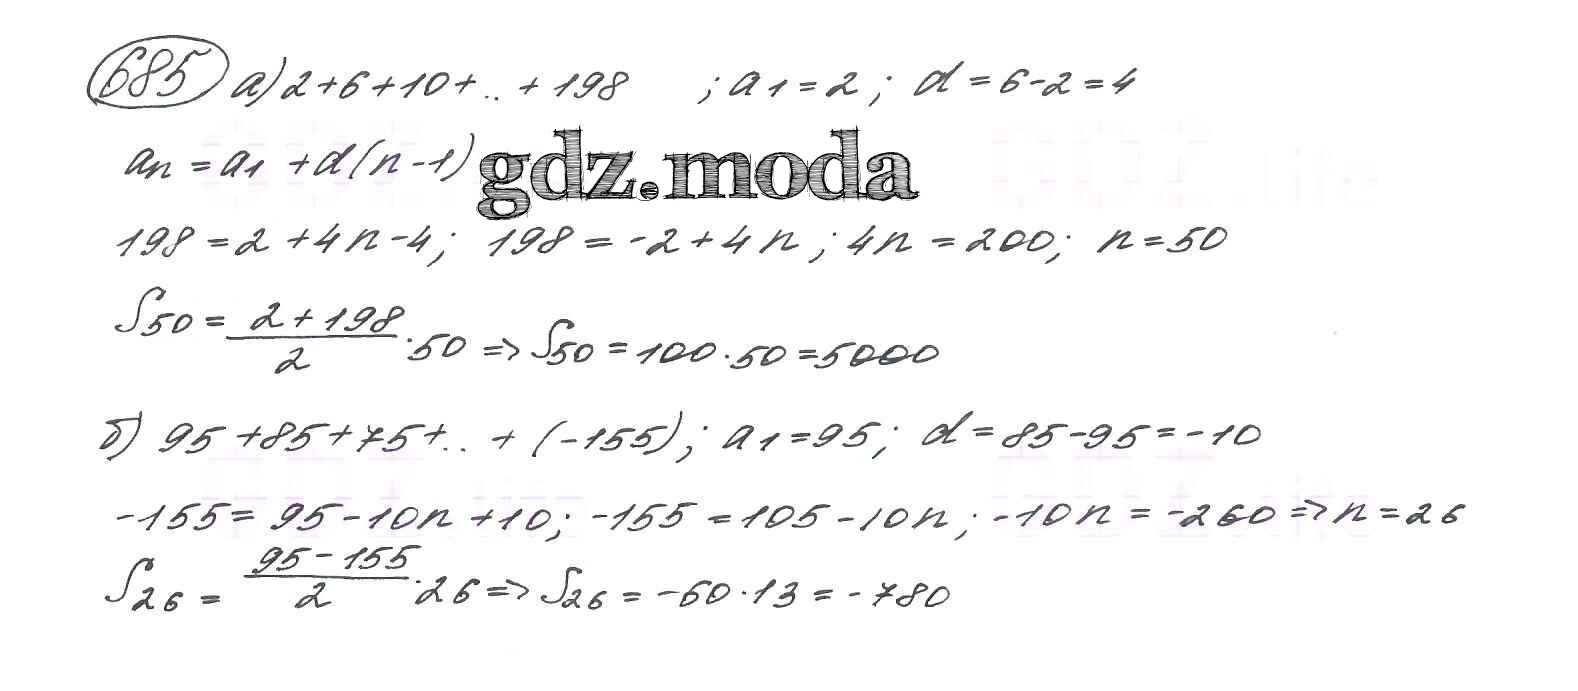 685 а) 2+6+10+..+198 ; a1=2; d=6-2=4
an=a1+d(n-1) gdz.moda
198=2+4n-4; 198=-2+4n; 4n=200; n=50
S50=(2+198)/2·50 => S50=100·50=5000
б) 95+85+75+..+(-155); a1=95; d=85-95=-10
-155=95-10n+10; -155=105-10n; -10n=-260 => n=26
S26=(95-155)/2·26 => S26=-60·13=-780